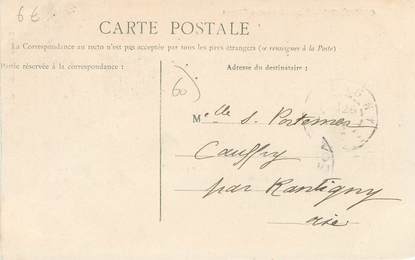 6€
CARTE POSTALE
La Correspondance au recto n'est pas acceptée par tous les pays étrangers (se renseigner à la Poste)
Partie réservée à la correspondance :
Adresse du destinataire :
60
Melle S. Portemer
Cauffry
par Rantigny
Oise